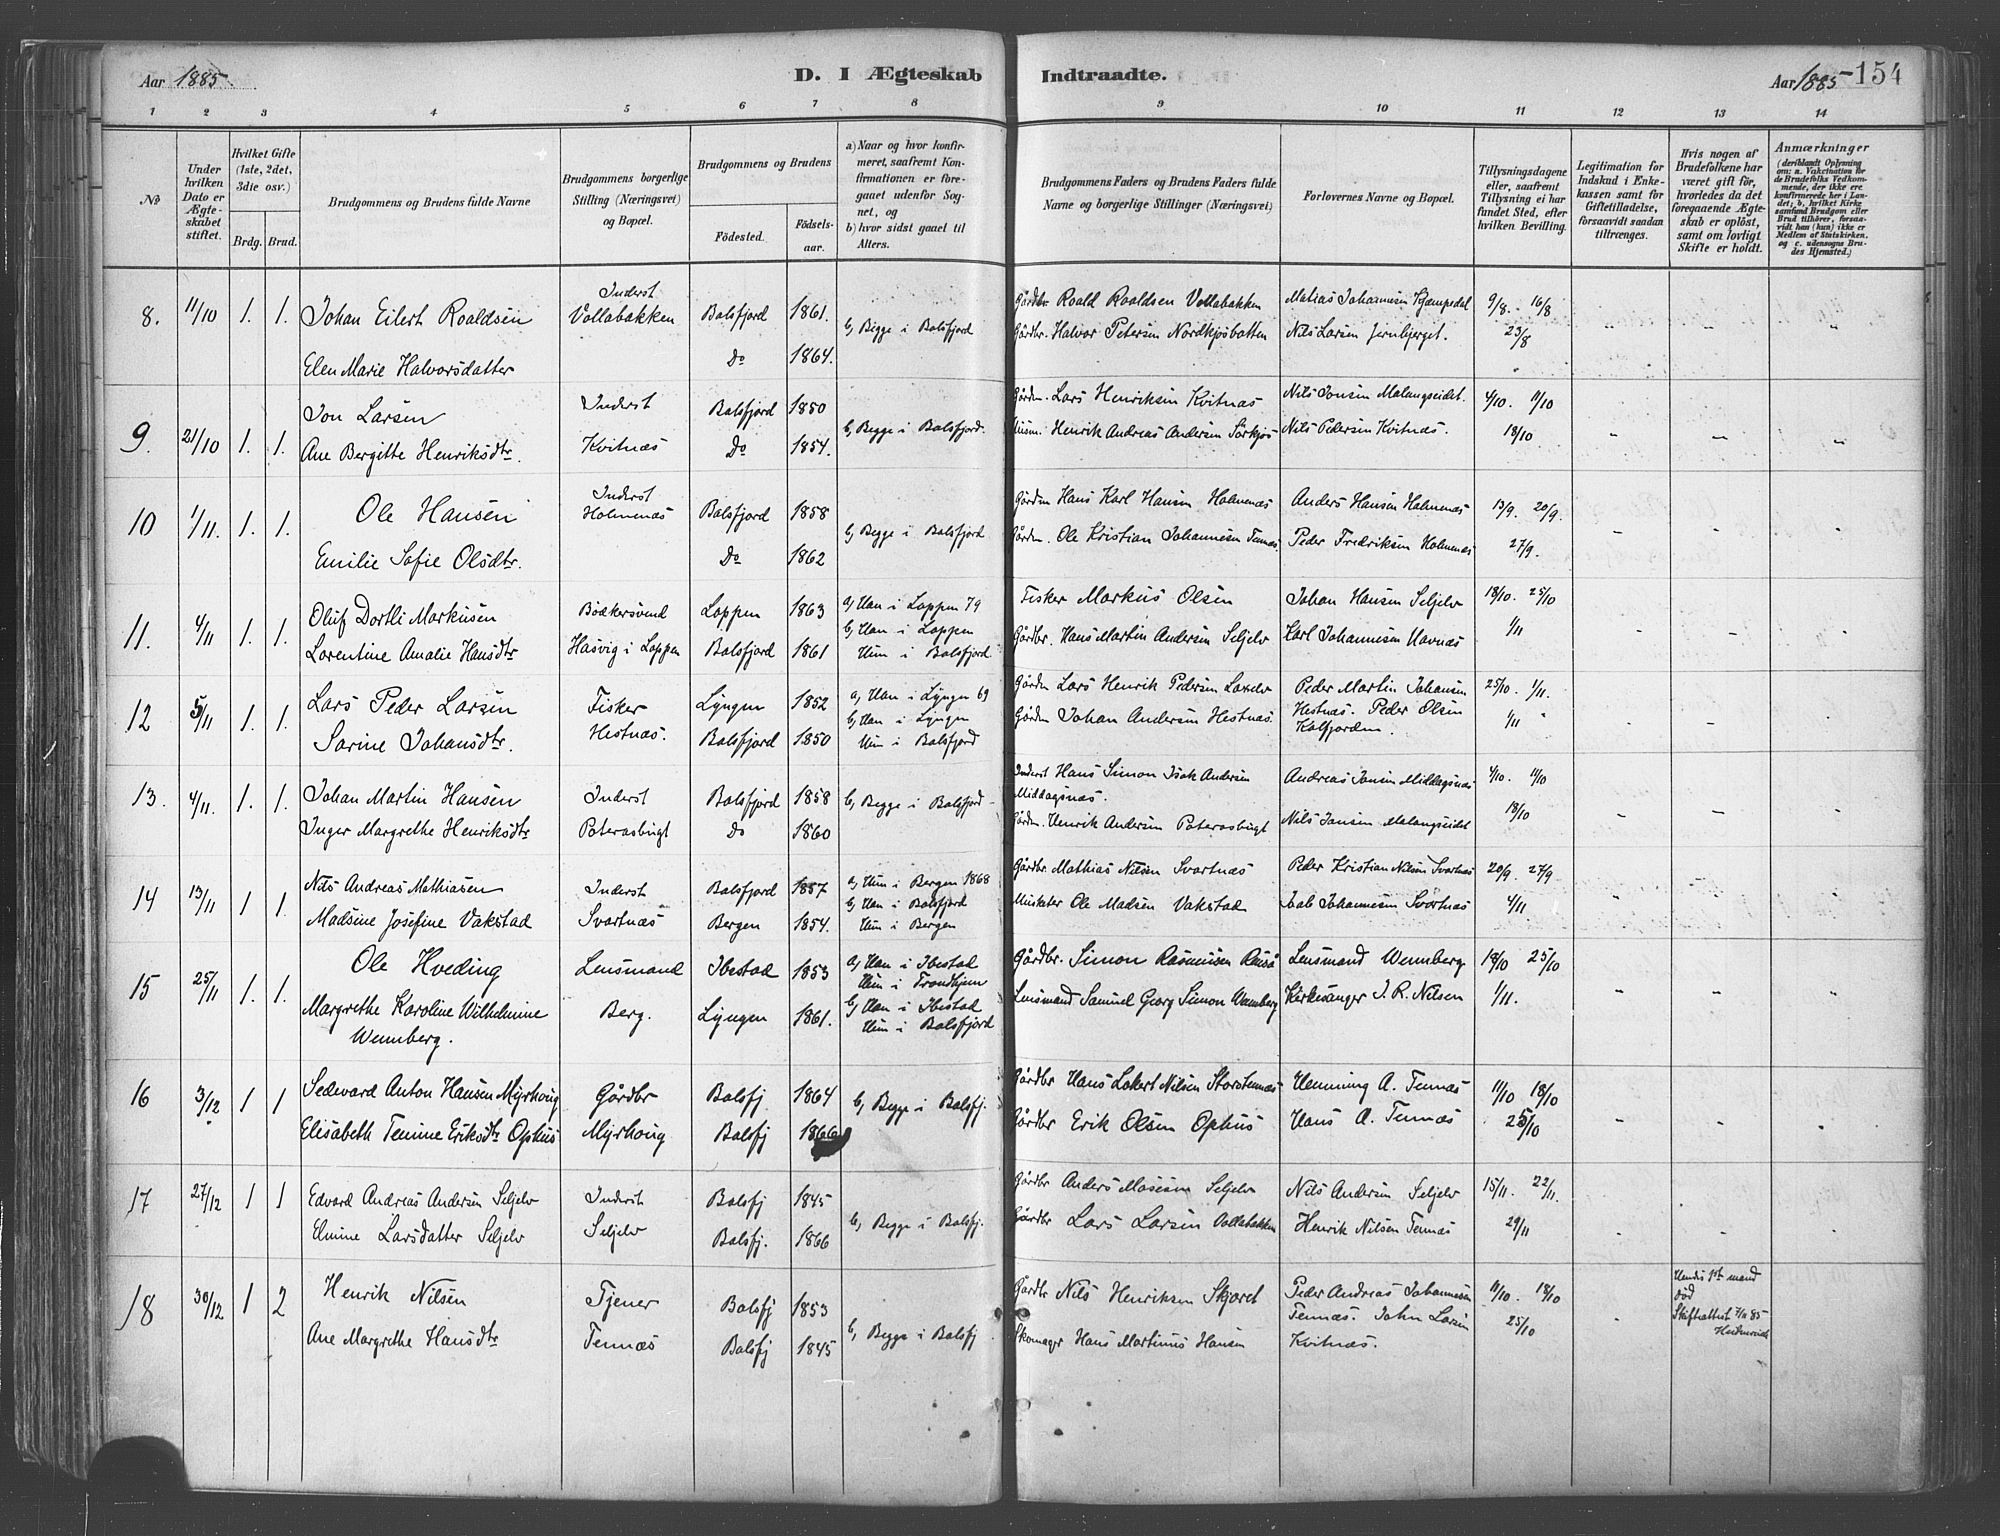 Aar 1885. D. I Ægteskab Indtraadte. Aar 1885 154
1 2 3 4 5 6 7 8 9 10 11 12 13 14
No
Under hvilken Dato er Ægteskabet stiftet.
Hvilket Gifte (1ste, 2det, 3die osv.)
Brdg. Brud.
Brudgommens og Brudens fulde Navne
Brudgommens borgerlige Stilling (Næringsvei) og Bopæl.
Brudgommens og Brudens
Fødested. Fødselsaar.
a) Naar og hvor konfirmeret, saafremt Konfirmationen er foregaaet udenfor Sognet, og
b) hvor sidst gaaet til Alters.
Brudgommens Faders og Brudens Faders fulde Navne og borgerlige Stillinger (Næringsvei)
Forlovernes Navne og Bopæl.
Tillysningsdagene eller, saafremt Tillysning ei har fundet Sted, efter hvilken Bevilling.
Legitimation for Indskud i Enkekassen samt for Giftetilladelse, forsaavidt saadan tiltrænges.
Hvis nogen af Brudefolkene har været gift før, hvorledes da det foregaaende Ægteskab er opløst, samt om lovligt Skifte er holdt.
Anmærkninger
(deriblandt Oplysning om: a. Vakcination for de Brudefolks Vedkommende, der ikke ere konfirmerede her i Landet; b, hvilket Kirkesamfund Brudgom eller Brud tilhører, forsaavidt han (hun) ikke er Medlem af Statskirken, og c. udensogns Brudes Hjemsted.)
8. 11/10 1. 1. Johan Eilert Roaldsen Inderst Vollabakken Balsfjord 1861. b, Begge i Balsfjord Gårdbr. Roald Roaldsen Vollabakken Matias Johannesen Kjempedal 9/8. 16/8
Elen Marie Halvorsdatter Do 1864. Gårdbr. Halvor Petersen Nordkjosbotten Nils Larsen Jernbjerget. 23/8
9. 21/10 1. 1. Jon Larsen Inderst Balsfjord 1850 b, Begge i Balsfjord. Gårdm. Lars Henriksen Kvitnæs Nils Jonsen Malangseidet. 4/10. 11/10
Ane Bergitte Henriksdtr. Kvitnæs Do 1854. Husm. Henrik Andreas Andersen Sørkjos Nils Pedersen Kvitnæs. 18/10
10 1/11. 1. 1. Ole Hansen Inderst Holmenæs Balsfjord 1858 b, Begge i Balsfjord Gårdm Hans Karl Hansen Holmenæs Anders Hansen Holmenæs 13/9. 20/9.
Emilie Sofie Olsdtr. Do 1862 Gårdm. Ole Kristian Johannesen Tennæs. Peder Fredriksen Holmenæs 27/9.
11. 4/11 1. 1. Oluf Dortli Markusen Bødkersvend Loppen 1863 a, Han i Loppen 79 Fisker Markus Olsen Johan Hansen Seljelv 18/10. 25/10
b, Han i Loppen
Lorentine Amalie Hansdtr Hasvig i Loppen Balsfjord 1861 Hun i Balsfjord Gårdbr. Hans Martin Andersen Seljelv Karl Johannesen Navnæs 1/11
12 5/11 1. 1. Lars Peder Larsen Fisker Lyngen 1852 a, Han i Lyngen 69 Gårdm Lars Henrik Pedersen Laxelv Peder Martin Johansen 25/10. 1/11.
b, Han i Lyngen Hestnæs. Peder Olsen
Sarine Johansdtr. Hestnæs. Balsfjord 1850 Hun i Balsfjord Gårdm Johan Andersen Hestnæs. Kalfjorden. 1/11
13. 4/11. 1. 1. Johan Martin Hansen Inderst Balsfjord 1858 b, Begge i Balsfjord Inderst Hans Simon Isak Andersen Middagsnæs. Andreas Jonsen Middagsnæs 4/10. 11/10
Inger Margrethe Henriksdtr Poterasbugt Do 1860 Gårdm. Henrik Andersen Poterasbugt Nils Jonsen Malangseidet 18/10
14 13/11 1 1. Nils Andreas Mathiasen Inderst Balsfjord 1857 a, Hun i Bergen 1868 Gårdbr. Mathias Nilsen Svartnæs Peder Kristian Nilsen Svartnæs 20/9 27/9
b, Han i Balsfjord
Madsine Josefine Vakstad Svartnæs Bergen 1854. Hun i Bergen Ole Madsen Vakstad Johannesen Svartnæs 4/11
15 25/11 1. 1. Ole Hveding Lensmand Ibestad 1853 a, Han i Ibestad Gårdbr. Simon Rasmusen Lensmand Wennberg 18/10 25/10
Hun i Trondhjem
Margrethe Karoline Wilhelmine Wennberg. Berg. Lyngen 1861. b, Han i Ibestad Lensmand Samuel Georg Simon Wennberg Kirkesanger J. R. Nilsen 1/11.
Hun i Balsfjord
16 3/12 1 1 Sedevard Anton Hansen Myrhoug Gårdbr Balsfj 1864 b, Begge i Balsfj. Gårdbr Hans Lakert Nilsen Storstennæs Henning A. Tennæs 11/10 18/10
Elisabeth Temine Eriksdtr Ophus Myrhoug Balsfj 1866 Gårdbr Erik Olsen Ophus Hans A. Tennæs 25/10
17 27/12 1 1 Edvard Andreas Andersen Seljelv Inderst Balsfj 1845 b, Begge i Balsfj. Gårdbr Anders Mosesen Seljelv Nils Andersen Seljelv 15/11. 22/11.
Elmine Larsdatter Seljelv Seljelv Balsfj. 1866 Gårdbr Lars Larsen Vollabakken Henrik Nilsen Tennæs 29/11
18 30/12 1 2 Henrik Nilsen Tjener Balsfj 1853 b, Begge i Balsfj Gårdbr Nils Henriksen Skjaret Peder Andreas Johannesen 11/10. 18/10 Hendes 1ste mand død
Tennæs. John Larsen Skifteattest 7/11 85
Ane Margrethe Hansdtr Tennæs Balsfj 1845 Skomager Hans Martinus Hansen Kvitnæs. 25/10